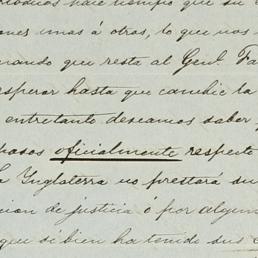 hace tiempo que su
ones unas á otras, lo que nos
mando que resta al Genl. Fa
esperar hasta que cambie la
entretanto deseamos saber
pasos oficialmente respecto
la Inglaterra no prestará su
cion de justicia ó por algun
que si bien ha tenido sus